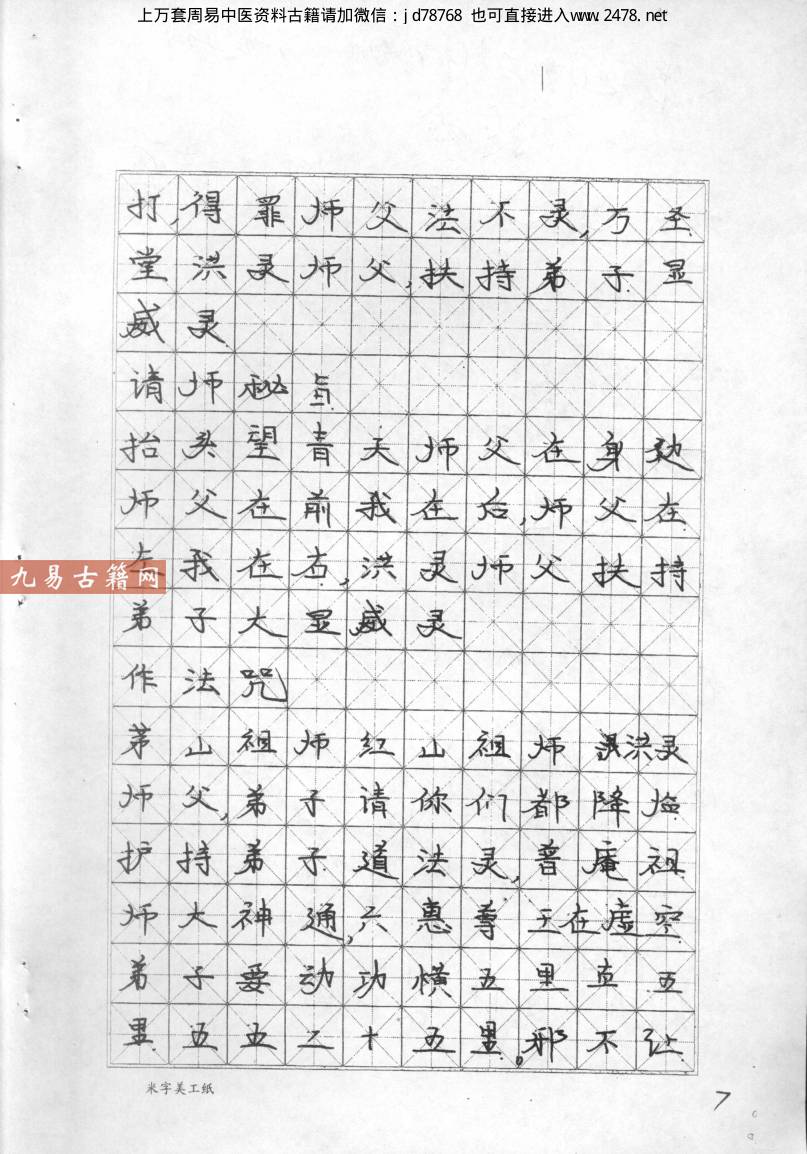 上万套周易中医资料古籍请加微信：jd78768 也可直接进入www.2478.net
打,得罪师父法不灵,万圣
堂洪灵师父,扶持弟子显
威灵
请师秘旨
抬头望青天师父在身边
师父在前我在后,师父在
左我在右,洪灵师父扶持
弟子大显威灵
作法咒
茅山祖师红山祖师洪灵
师父,弟子请你们都降临
护持弟子道法灵,普庵祖
师大神通,六惠尊王在虚空
弟子要动功横五里直五
里五五二十五里。邪不让
九易古籍网
米字美工纸
7